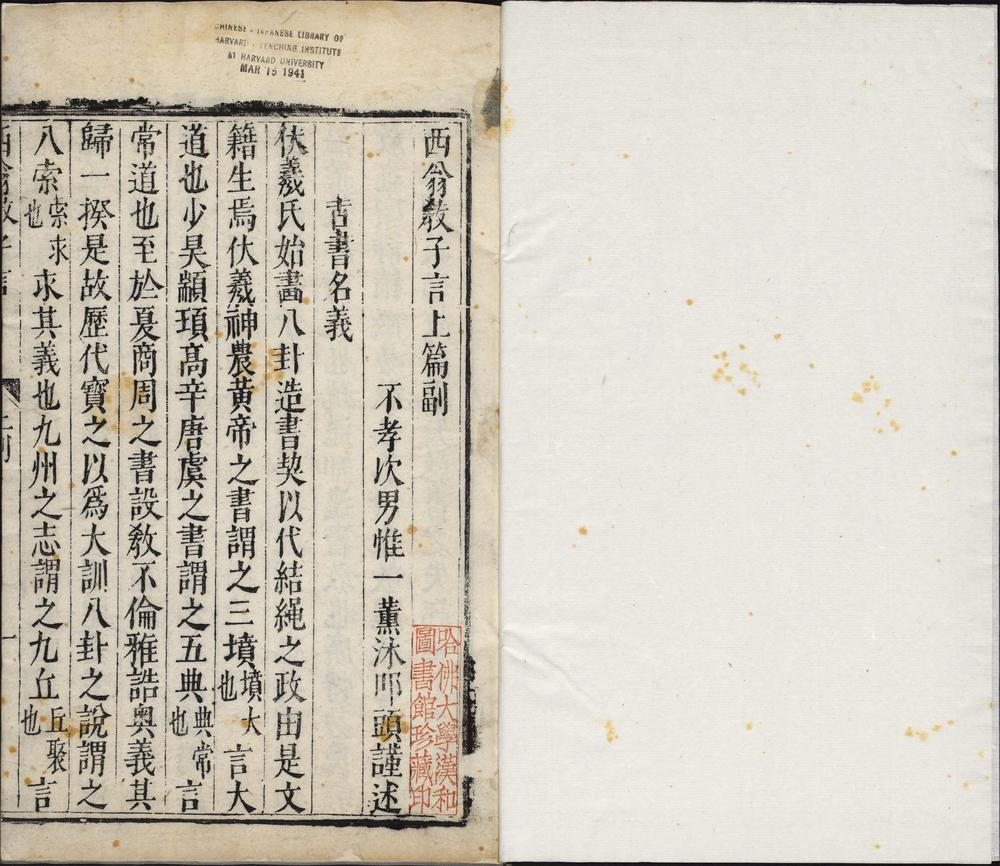 CHINESE - JAPANESE LIBRARY OF
HARVARD - YENCHING INSTITUTE
AT HARVARD UNIVERSITY
MAR 15 1941
西翁教子言上篇副
不孝次男惟一薰沐叩頭謹述
古書名義
伏羲氏始畫八卦造書契以代結繩之政由是文
籍生焉伏羲神農黃帝之書謂之三墳墳大也言大
道也少昊顓頊高辛唐虞之書謂之五典典常也言
常道也至於夏商周之書設教不倫雅誥奧義其
歸一揆是故歷代寶之以爲大訓八卦之說謂之
八索索求也求其義也九州之志謂之九丘丘聚也言
西翁教子言
一
哈佛大學漢和
圖書館珍藏印